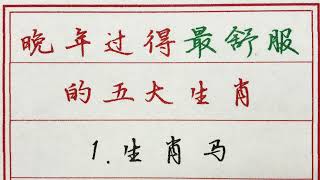 晚年过得最舒服
的五大生肖
1.生肖马